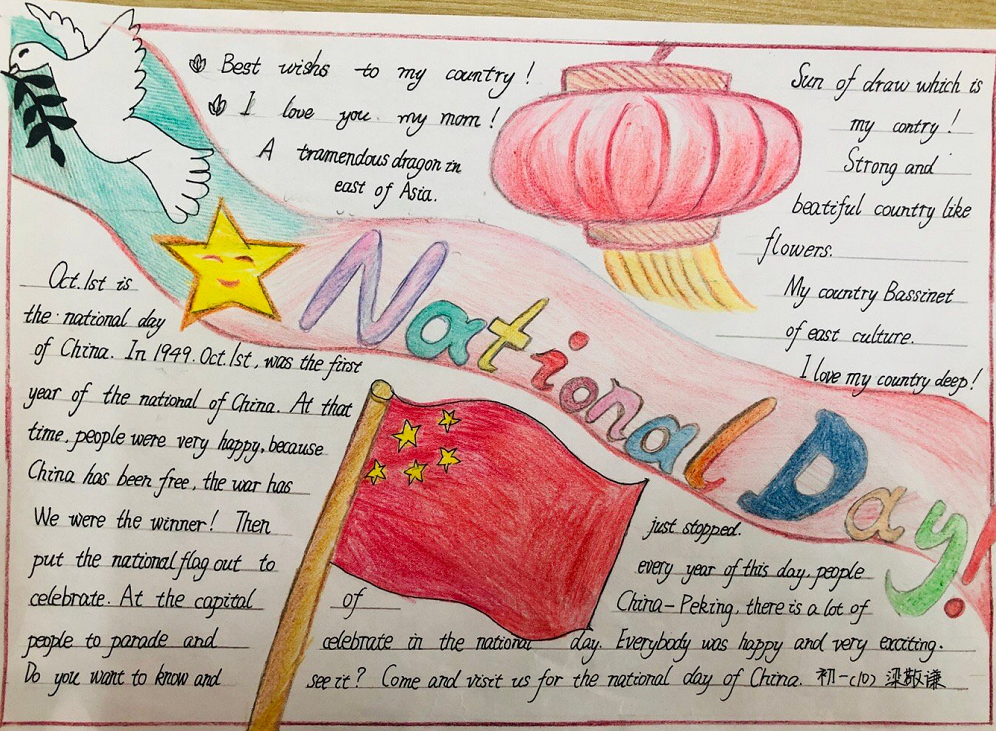 Best wishs to my country!
I love you my mom!
A tramendous dragon in
east of Asia.
Sun of draw which is
my contry!
Strong and
beatiful country like
flowers.
My country Bassinet
of east culture.
I love my country deep!
National Day!
Oct.1st is
the national day
of China. In 1949. Oct.1st, was the first
year of the national of China. At that
time, people were very happy, because
China has been free, the war has
just stopped.
We were the winner! Then
every year of this day, people
put the national flag out to
celebrate. At the capital
of
China-Peking, there is a lot of
people to parade and
celebrate in the national day. Everybody was happy and very exciting.
Do you want to know and
see it? Come and visit us for the national day of China. 初一(10) 梁敬谦